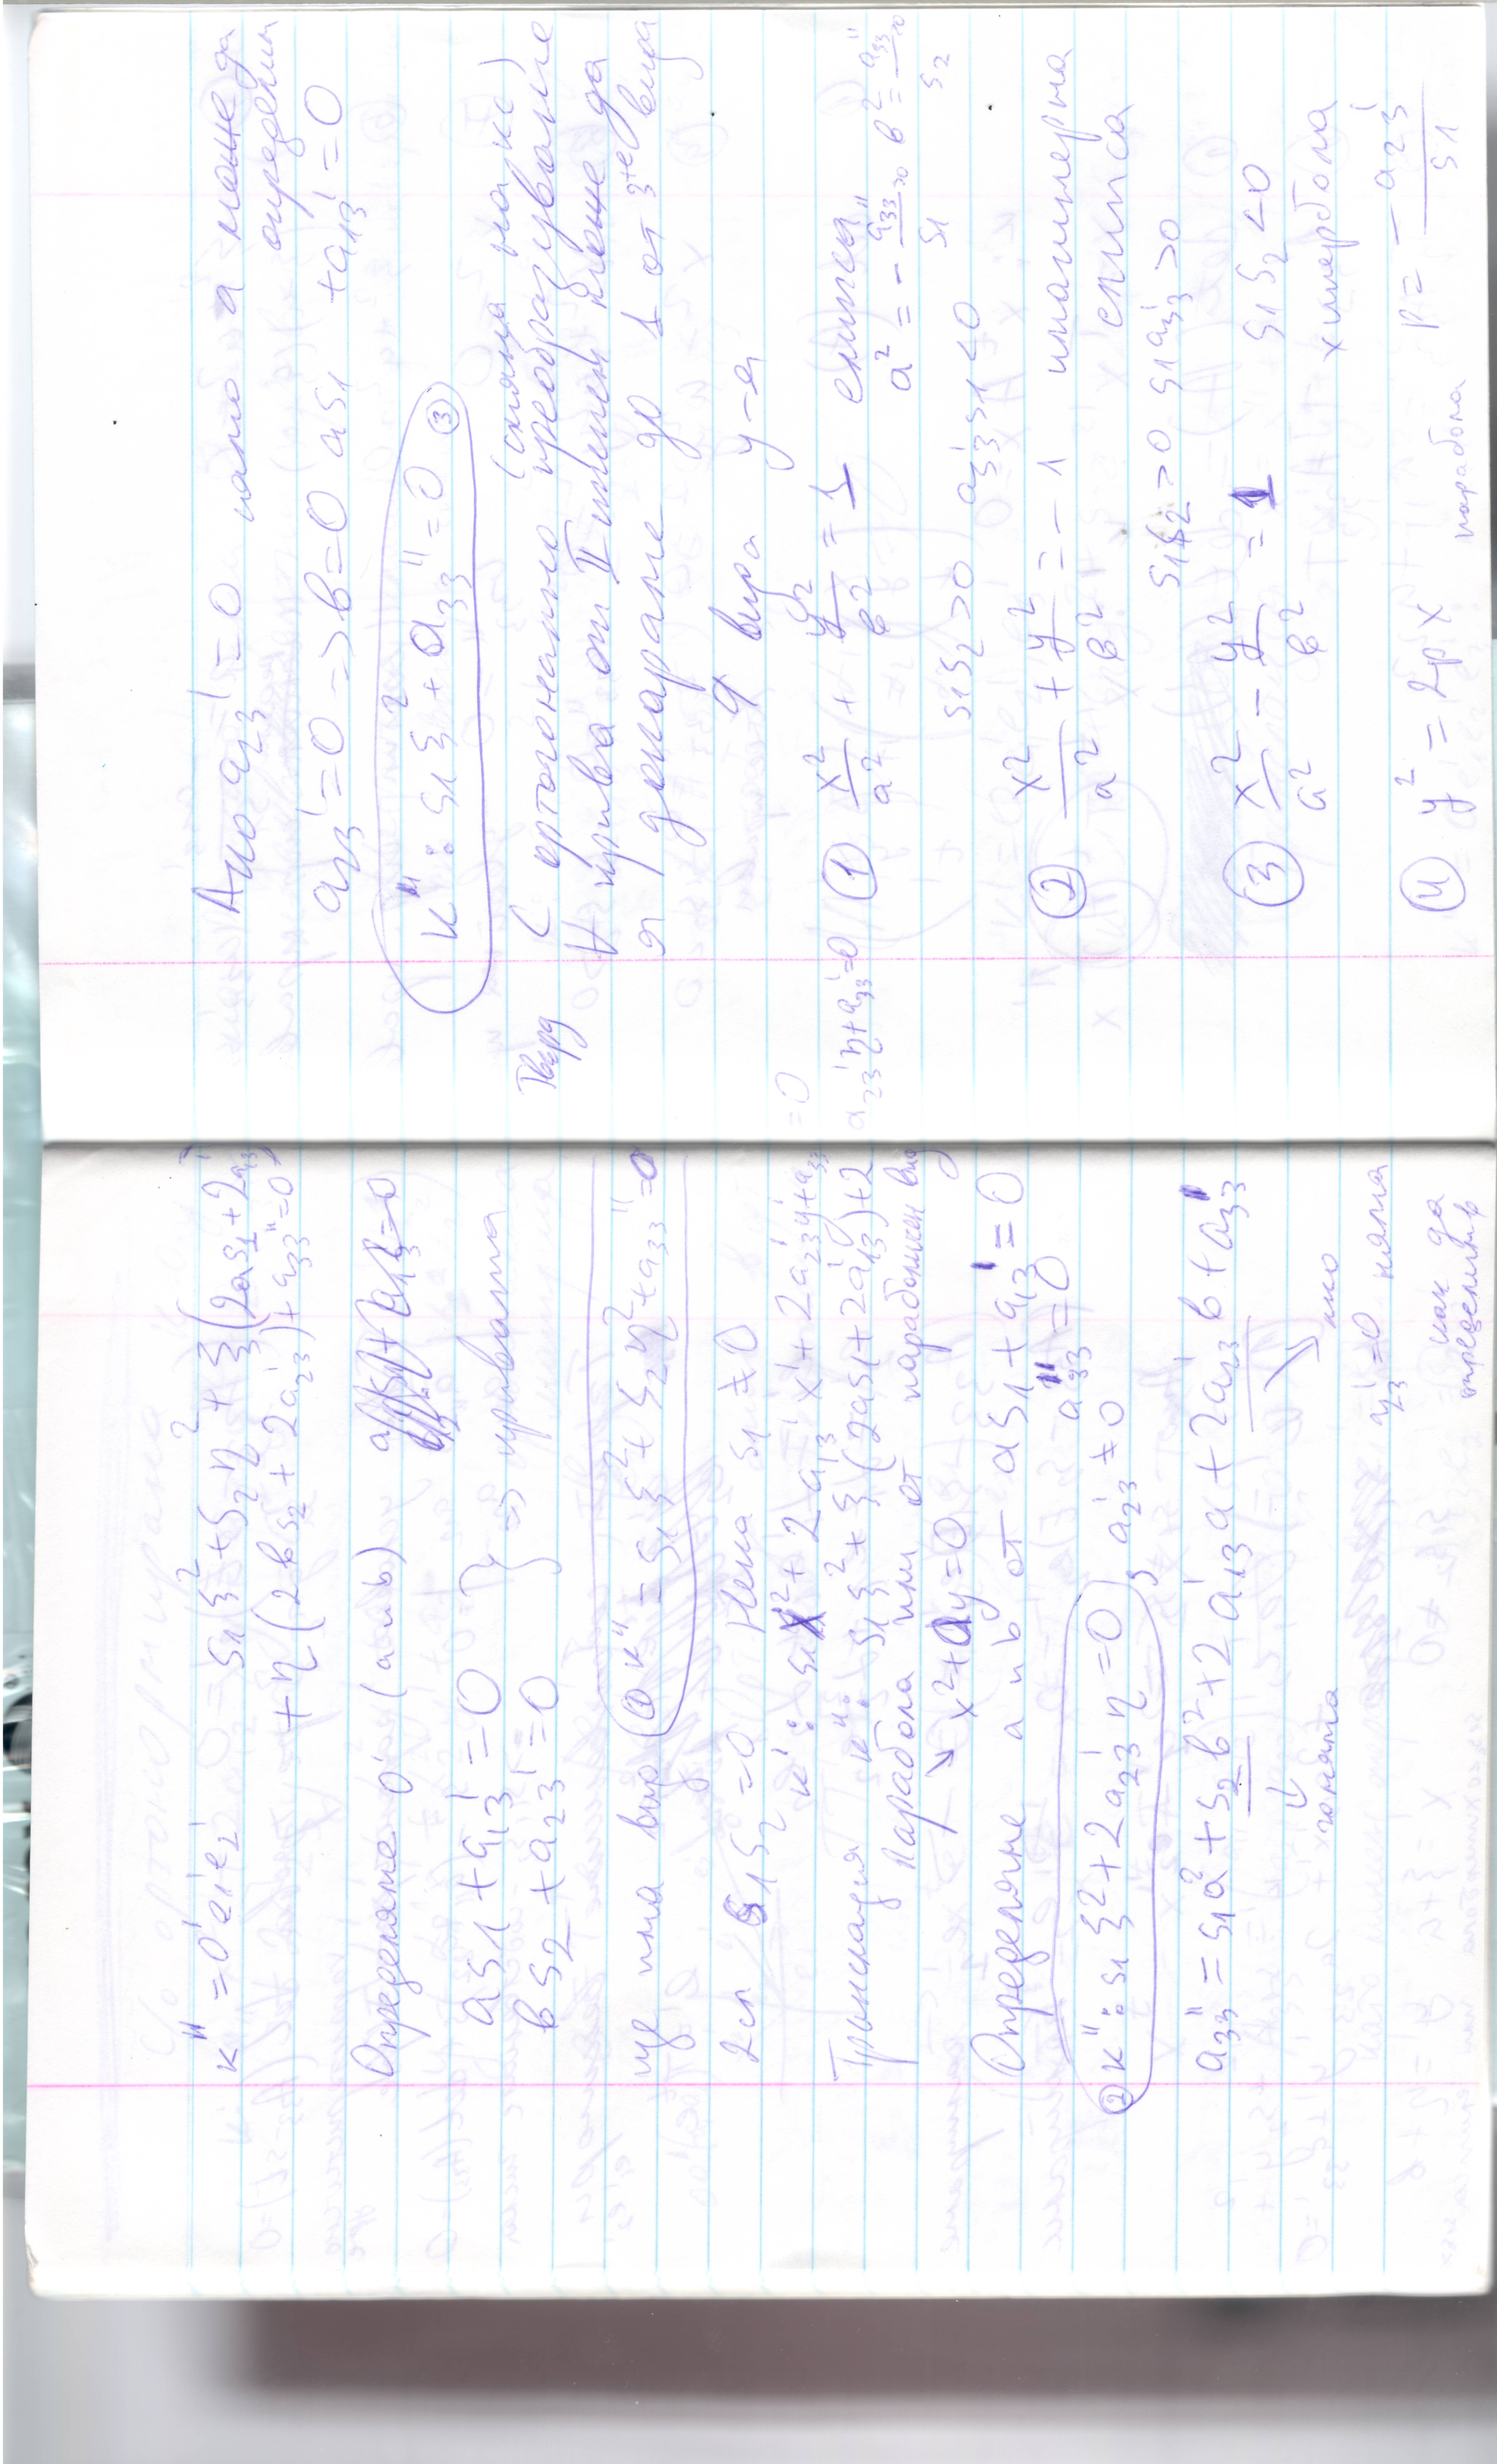 K" = O'e₁'e₂'  s₁ξ² + s₂η² + ξ(2as₁ + 2a₁₃')
+ η(2bs₂ + 2a₂₃') + a₃₃" = 0
Определяме O' (a и b)
as₁ + a₁₃' = 0
bs₂ + a₂₃' = 0 } => кривата
ще има вид ① K" = s₁ξ² + s₂η² + a₃₃" = 0
2сл s₁s₂ = 0 Нека s₁ ≠ 0
K': s₁x² + 2a₁₃'x' + 2a₂₃'y' + a₃₃' = 0
Транслация K": s₁ξ² + ξ(2as₁ + 2a₁₃') + 2a₂₃'η + a₃₃' = 0
Парабола или от параболичен вид
↘ x² + ay = 0
Определяне a и b от as₁ + a₁₃' = 0
a₃₃" = 0
② K": s₁ξ² + 2a₂₃'η = 0, a₂₃' ≠ 0
a₃₃" = s₁a² + s₂b² + 2a₁₃'a + 2a₂₃'b + a₃₃"
ако
a₂₃' = 0 няма
как да
Ако a₂₃' = 0 само a може да
определим
a₂₃' = 0 => b = 0 as₁ + a₁₃' = 0
K": s₁ξ² + a₃₃" = 0 ③
Твърд С ортогонално (смяна на кс) преобразувание
∀ крива от II степен може да
я докараме до 1 от 3те вида
9 вида у-я
① x²/a² + y²/b² = 1 елипса
s₁s₂ > 0 a₃₃'s₁ < 0 a² = - a₃₃"/s₁ >0 b² = a₃₃"/s₂ >0
② x²/a² + y²/b² = -1 имагинерна
елипса
s₁s₂ > 0 s₁a₃₃' > 0
③ x²/a² - y²/b² = 1 s₁s₂ < 0
хипербола
④ y² = 2px парабола p = -a₂₃'/s₁